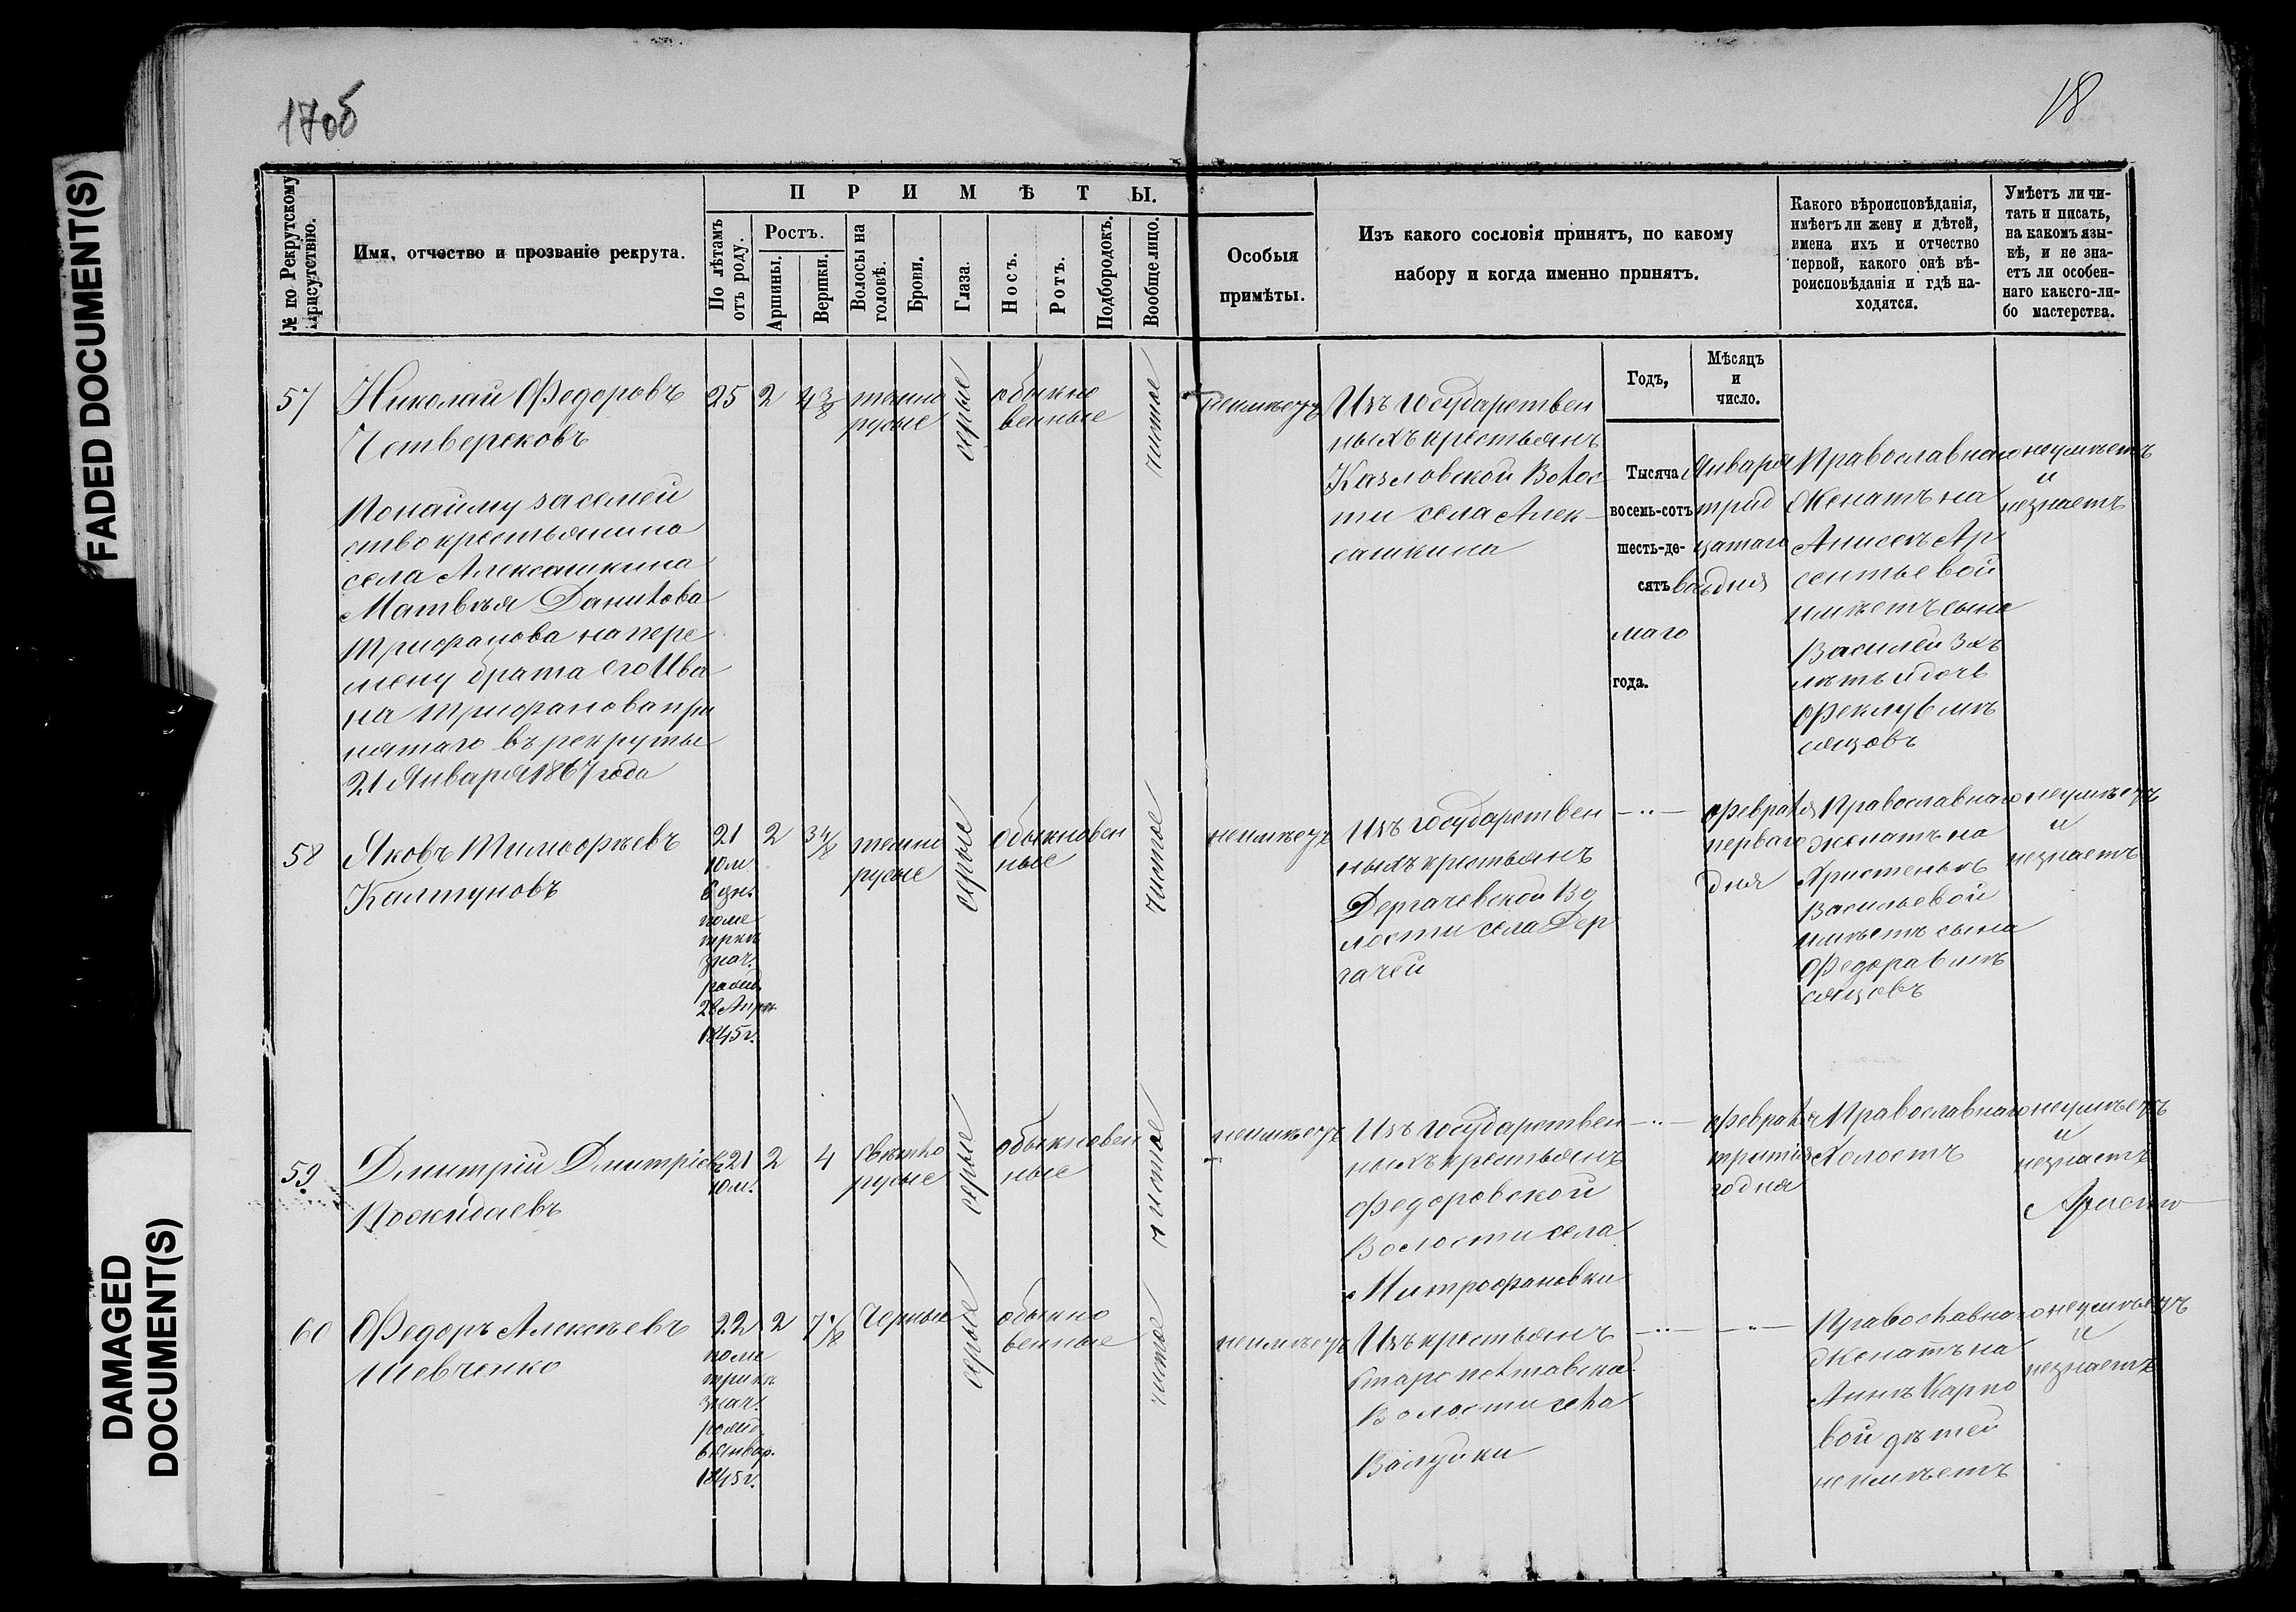 17об
18
FADED DOCUMENT(S)
DAMAGED
DOCUMENT(S)
№ по Рекрутскому
Присутствію.
Имя, отчество и прозваніе рекрута.
ПРИМѢТЫ.
По лѣтамъ
отъ роду.
Ростъ.
Аршины.
Вершки.
Волосы на
головѣ.
Брови.
Глаза.
Носъ.
Ротъ.
Подбородокъ.
Вообще лицо.
Особыя
примѣты.
Изъ какого сословія принятъ, по какому
набору и когда именно принятъ.
Какого вѣроисповѣданія,
имѣетъ ли жену и дѣтей,
имена ихъ и отчество
первой, какого онѣ вѣ-
роисповѣданія и гдѣ на-
ходятся.
Умѣетъ ли чи-
тать и писать,
на какомъ язы-
кѣ, и не зна-
етъ ли особен-
наго какого-ли-
бо мастерства.
Годъ,
Мѣсяцъ
и
число.
57
Николай Федоровъ
Четверековъ
Понайму за семей
ство крестьянина
села Алексашкина
Матвѣя Данилова
Трифанова на пере
мену брата его Ива
на Трифанова при
нятаго въ рекруты
21 Января 1867 года
25
2
4 3/8
темно
русые
серые
обыкно
венные
чистое
неимѣетъ
Изъ государствен
ныхъ крестьянъ
Казловской Волос
ти села Алек-
сашкина
Тысяча
восемь-сотъ
шесть-де-
сять седь
маго
года.
Января
трид
цатаго
дня
Православнаго
Женатъ на
Анисеѣ Ар
сентьевой
имѣетъ сына
Василей 3хъ
лѣтъ и дочь
Феклу 6 мѣ
сяцовъ
неумѣетъ
и
незнаетъ
58
Яковъ Тимофѣевъ
Калтуновъ
21
2
темно
русые
серые
обыкновен
ные
чистое
28 Апрѣ.
1845 г.
неимѣетъ
Изъ государствен
ныхъ крестьянъ
Дергачевской Во
лости села Дер
гачей
—"—
Февраля
перваго
дня
Православнаго
женатъ на
Христеньѣ
Васильевой
имѣетъ сына
Федора 8 мѣ
сяцовъ
неумѣетъ
и
незнаетъ
59
Дмитрій Дмитріевъ
Поскидаевъ
21
2
4
свѣтло
русые
серые
обыкновен
ные
чистое
неимѣетъ
Изъ государствен
ныхъ крестьянъ
Федоровской
Волости села
Митрофановки
—"—
Февраля
третья
го дня
Православнаго
Холостъ
неумѣетъ
и
незнаетъ
60
Федоръ Алексѣевъ
Шевченко
22
2
7 7/8
Черные
серые
обыкно
венные
чистое
6 Январ.
1845 г.
неимѣетъ
Изъ крестьянъ
Старополтавской
Волости села
Валуйки
—"—
—"—
Православнаго
Женатъ на
Аннѣ Карпо
вой дѣтей
неимѣетъ
неумѣетъ
и
незнаетъ